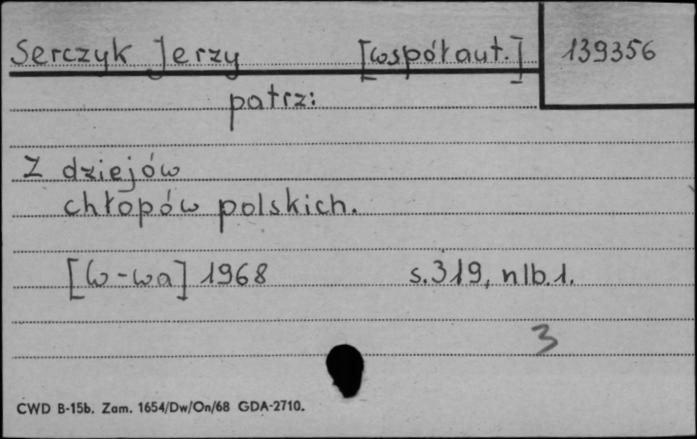 Serczyk Jerzy [współaut.] 139356
patrz:
Z dziejów
chłopów polskich.
[W-wa] 1968 s.319, nlb.1.
3
CWD B-15b. Zam. 1654/Dw/On/68 GDA-2710.